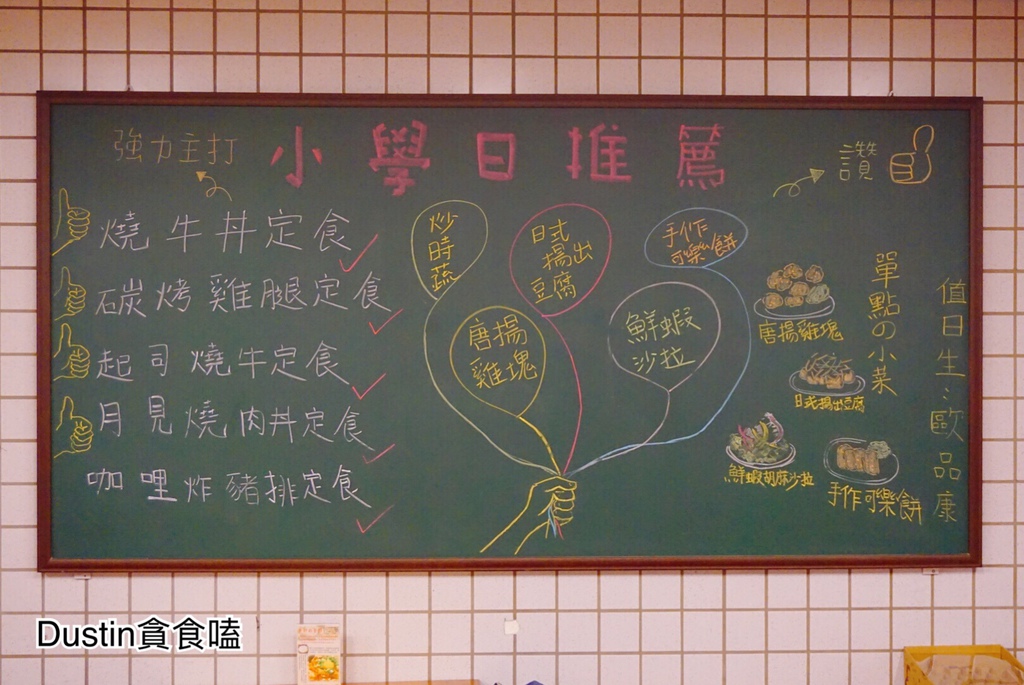 小學日推薦
強力主打
讚
燒牛丼定食
碳烤雞腿定食
起司燒牛定食
月見燒肉丼定食
咖哩炸豬排定食
炒時蔬
日式
揚出
豆腐
手作
可樂餅
唐揚
雞塊
鮮蝦
沙拉
唐揚雞塊
日式揚出豆腐
鮮蝦胡麻沙拉
手作可樂餅
單點の小菜
值日生:歐品康
Dustin貪食嗑